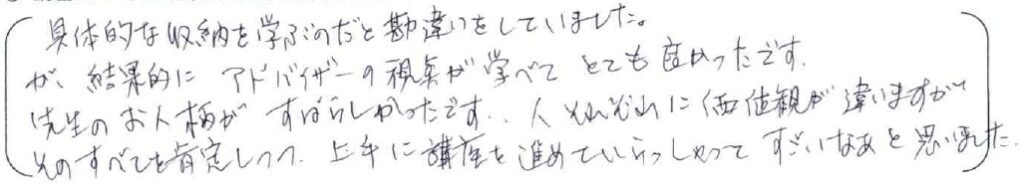 具体的な収納を学ぶのだと勘違いをしていました。
が、結果的に アドバイザーの視点が学べて とても良かったです.
先生のお人柄が すばらしかったです. 人それぞれに価値観が違いますが
そのすべてを肯定しつつ. 上手に講座を進めていらっしゃって すごいなあと思いました.